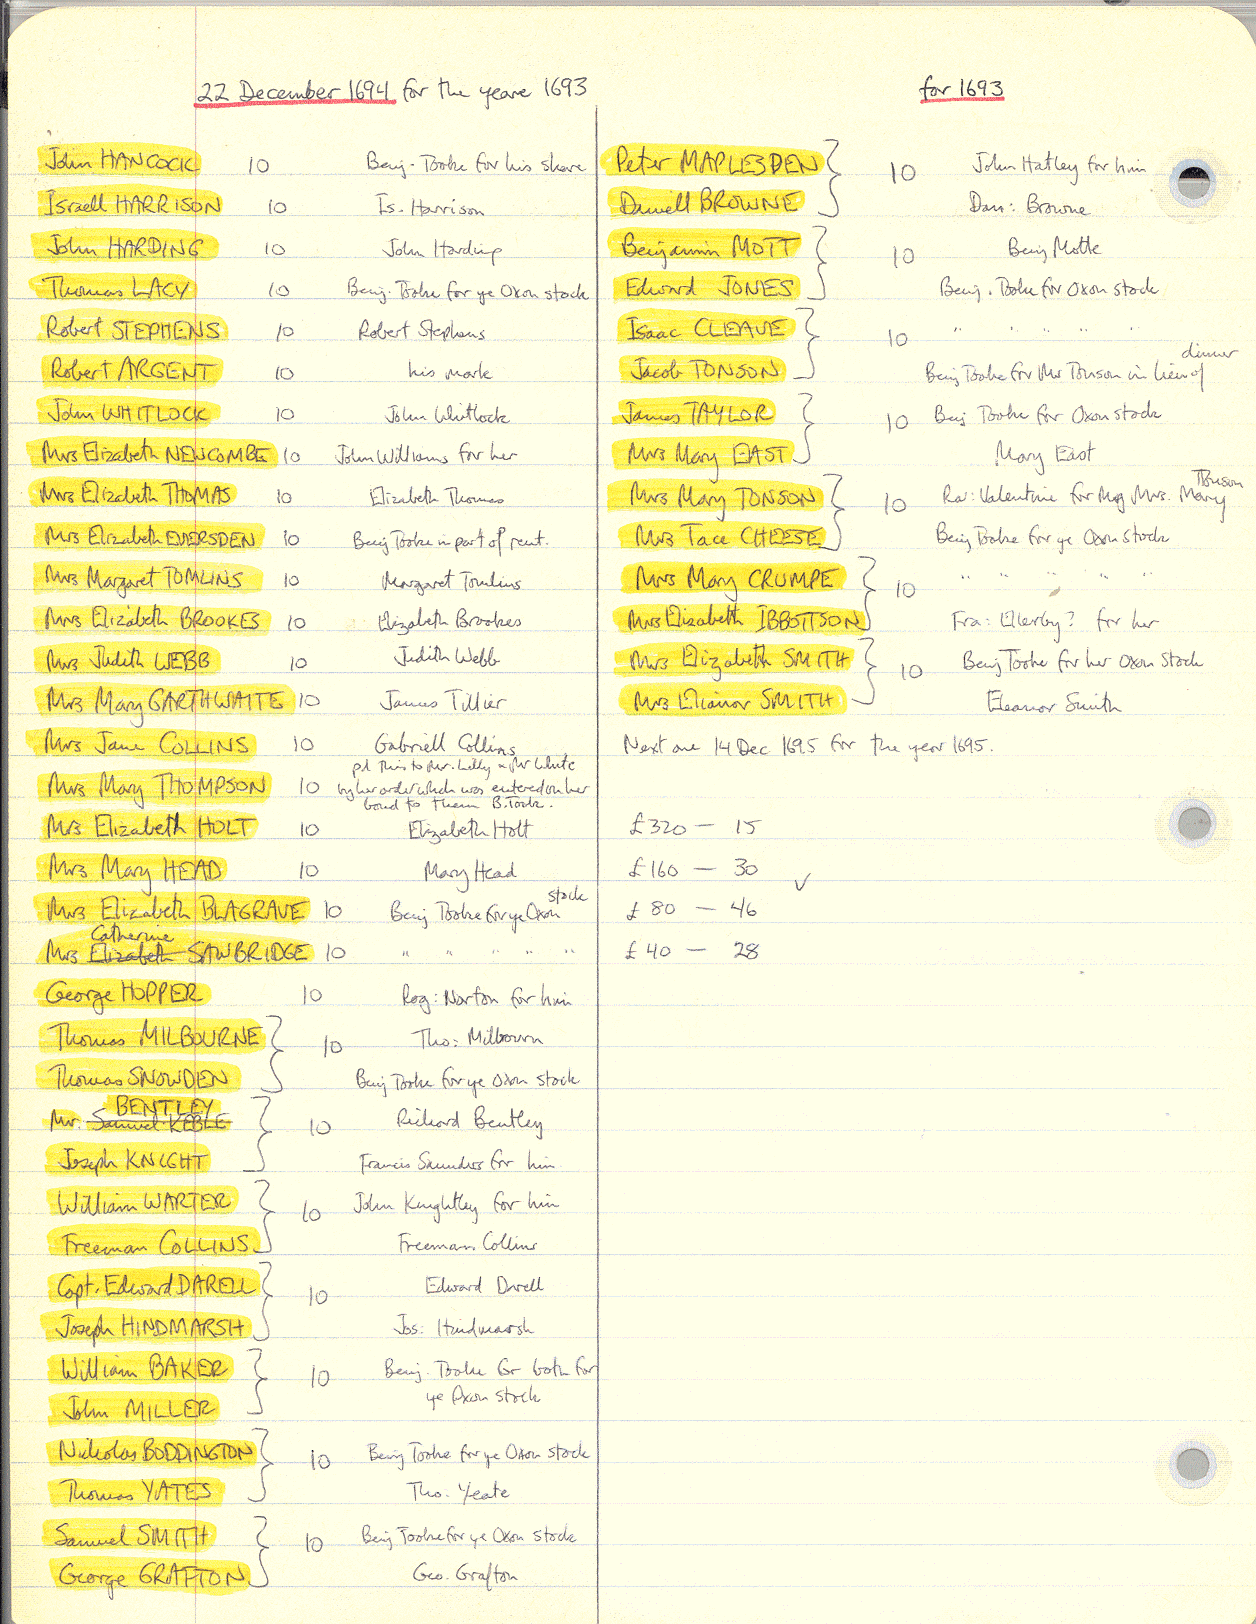 22 December 1694 for the yeare 1693
John HANCOCK 10 Benj. Tooke for his share
Israell HARRISON 10 Is. Harrison
John HARDING 10 John Harding
Thomas LACY 10 Benj. Tooke for ye Oxon stock
Robert STEPHENS 10 Robert Stephens
Robert ARGENT 10 his mark
John WHITLOCK 10 John Whitlock
Mrs Elizabeth NEWCOMBE 10 John Williams for her
Mrs Elizabeth THOMAS 10 Elizabeth Thomas
Mrs Elizabeth EVERSDEN 10 Benj Tooke in part of rent.
Mrs Margaret TOMLINS 10 Margaret Tomlins
Mrs Elizabeth BROOKES 10 Elizabeth Brookes
Mrs Judith WEBB 10 Judith Webb
Mrs Mary GARTHWAITE 10 James Tillier
Mrs Jane COLLINS 10 Gabriell Collins
Mrs Mary THOMPSON 10 pd this to Mr. Lilly & Mr White
by her order which was entered on her
bond to them B. Tooke.
Mrs Elizabeth HOLT 10 Elizabeth Holt
Mrs Mary HEAD 10 Mary Head
Mrs Elizabeth BLAGRAVE 10 Benj Tooke for ye Oxon stock
Mrs Elizabeth Catherine SAWBRIDGE 10 " " " " "
George HOPPER 10 Rog: Norton for him
Thomas MILBOURNE } 10 Tho: Milbourn
Thomas SNOWDEN Benj Tooke for ye Oxon stock
BENTLEY
Mr. Samuel KEBLE } 10 Richard Bentley
Joseph KNIGHT Francis Saunders for him
William WARTER } 10 John Knightley for him
Freeman COLLINS Freeman Collins
Capt. Edward DARELL } 10 Edward Darell
Joseph HINDMARSH Jos: Hindmarsh
William BAKER } 10 Benj. Tooke for both for
John MILLER ye Oxon stock
Nicholas BODDINGTON } 10 Benj Tooke for ye Oxon stock
Thomas YATES Tho. Yeate
Samuel SMITH } 10 Benj Tooke for ye Oxon stock
George GRAFTON Geo. Grafton
for 1693
Peter MAPLESDEN } 10 John Hatley for him
Daniell BROWNE Dan: Browne
Benjamin MOTT } 10 Benj Motte
Edward JONES Benj. Tooke for Oxon stock
Isaac CLEAVE } 10 " " " " "
Jacob TONSON Benj Tooke for Mr Tonson in lieu of dinner
James TAYLOR } 10 Benj Tooke for Oxon stock
Mrs Mary EAST Mary East
Mrs Mary TONSON } 10 Ra: Valentine for Mrs. Mary Tonson
Mrs Tace CHEESE Benj Tooke for ye Oxon stock
Mrs Mary CRUMPE } 10 " " " " "
Mrs Elizabeth IBBOTTSON Fra: Ellerby? for her
Mrs Elizabeth SMITH } 10 Benj Tooke for her Oxon stock
Mrs Elianor SMITH Eleanor Smith
Next one 14 Dec 1695 for the year 1695.
£320 — 15
£160 — 30 ✓
£80 — 46
£40 — 28